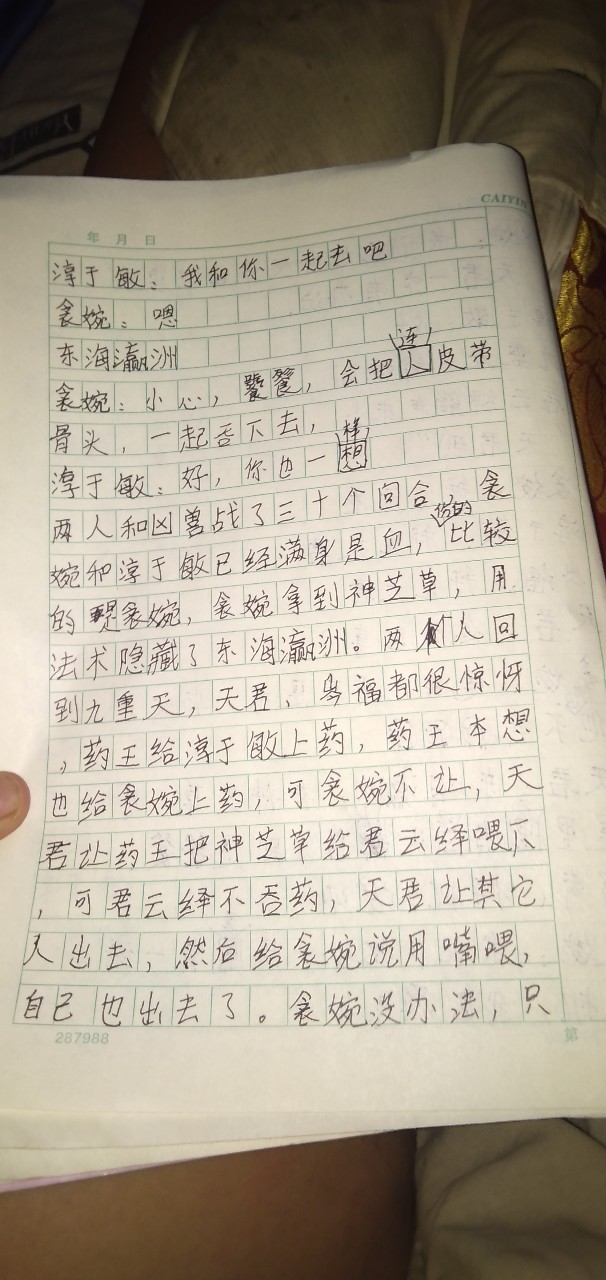 CAIYIN
年 月 日
淳于敏：我和你一起去吧
衾婉：嗯
东海瀛洲
连
衾婉：小心，饕餮，会把人皮带
骨头，一起吞下去，
样，
淳于敏：好，你也一想
两人和凶兽战了三十个回合，衾
伤的
婉和淳于敏已经满身是血，比较
的是衾婉，衾婉拿到神芝草，用
法术隐藏了东海瀛洲。两人回
到九重天，天君、乌福都很惊讶
，药王给淳于敏上药，药王本想
也给衾婉上药，可衾婉不让，天
君让药王把神芝草给君云绎喂下
，可君云绎不吞药，天君让其它
人出去，然后给衾婉说用嘴喂，
自己也出去了。衾婉没办法，只
287988
第